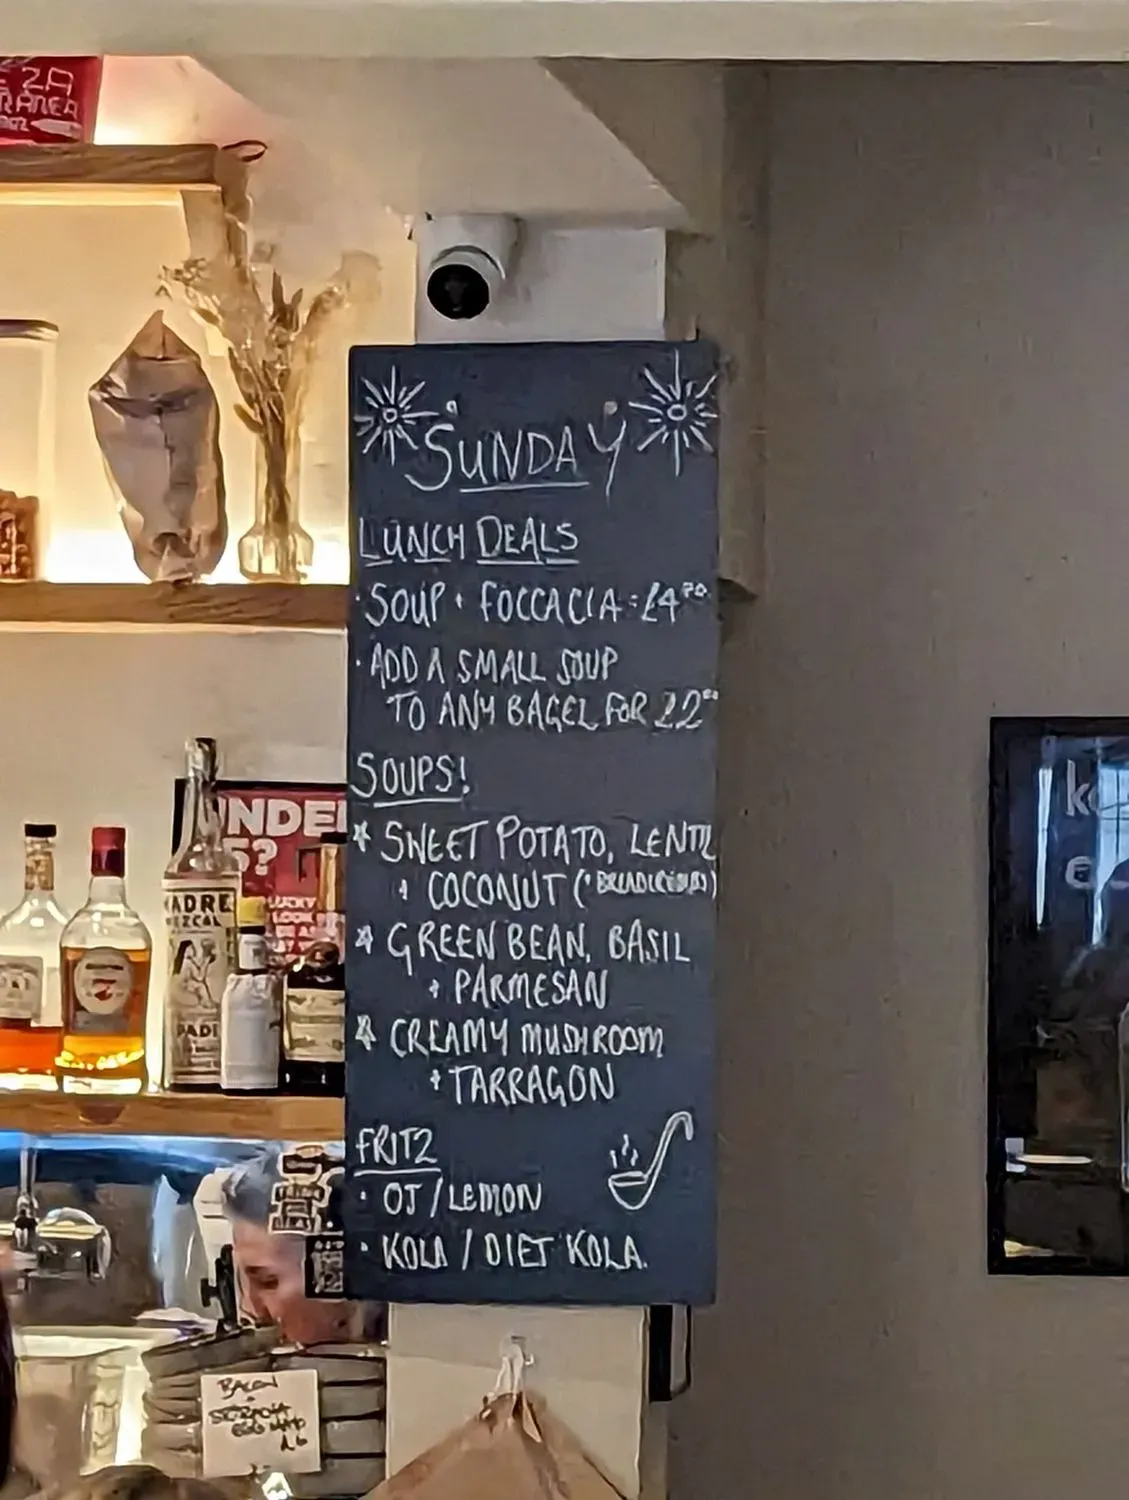 ZA
SUNDAY
LUNCH DEALS
· SOUP + FOCCACIA = £4
· ADD A SMALL SOUP
TO ANY BAGEL FOR £2
SOUPS!
SWEET POTATO, LENTIL
+ COCONUT (
GREEN BEAN, BASIL
+ PARMESAN
CREAMY MUSHROOM
+ TARRAGON
FRITZ
· OJ / LEMON
· KOLA / DIET KOLA.
UNDE
5?
LUCKY
LOOK
MEZCAL
BACON
EGG MAYO